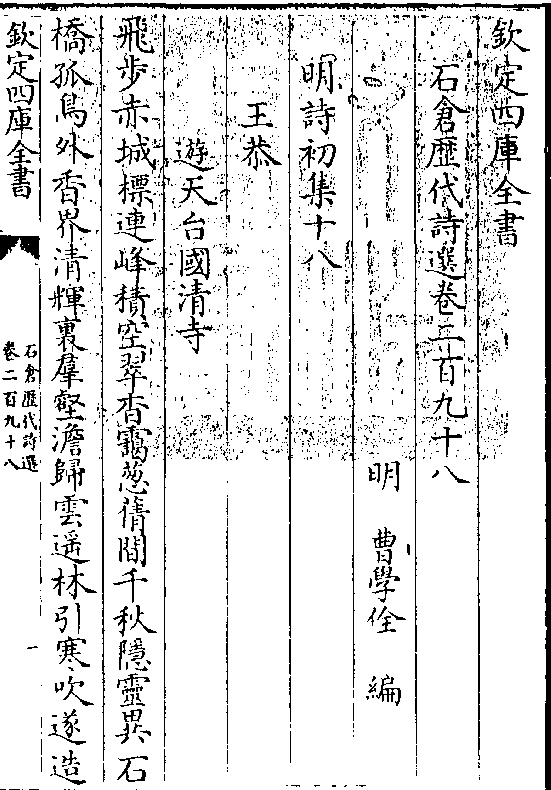 欽定四庫全書
石倉歷代詩選卷二百九十八
明 曹學佺 編
明詩初集十八
王恭
遊天台國清寺
飛步赤城標連峰積空翠杳靄葱蒨間千秋隱靈異石
橋孤鳥外香界清輝裏羣壑澹歸雲遥林引寒吹遂造
欽定四庫全書
石倉歷代詩選
卷二百九十八
一